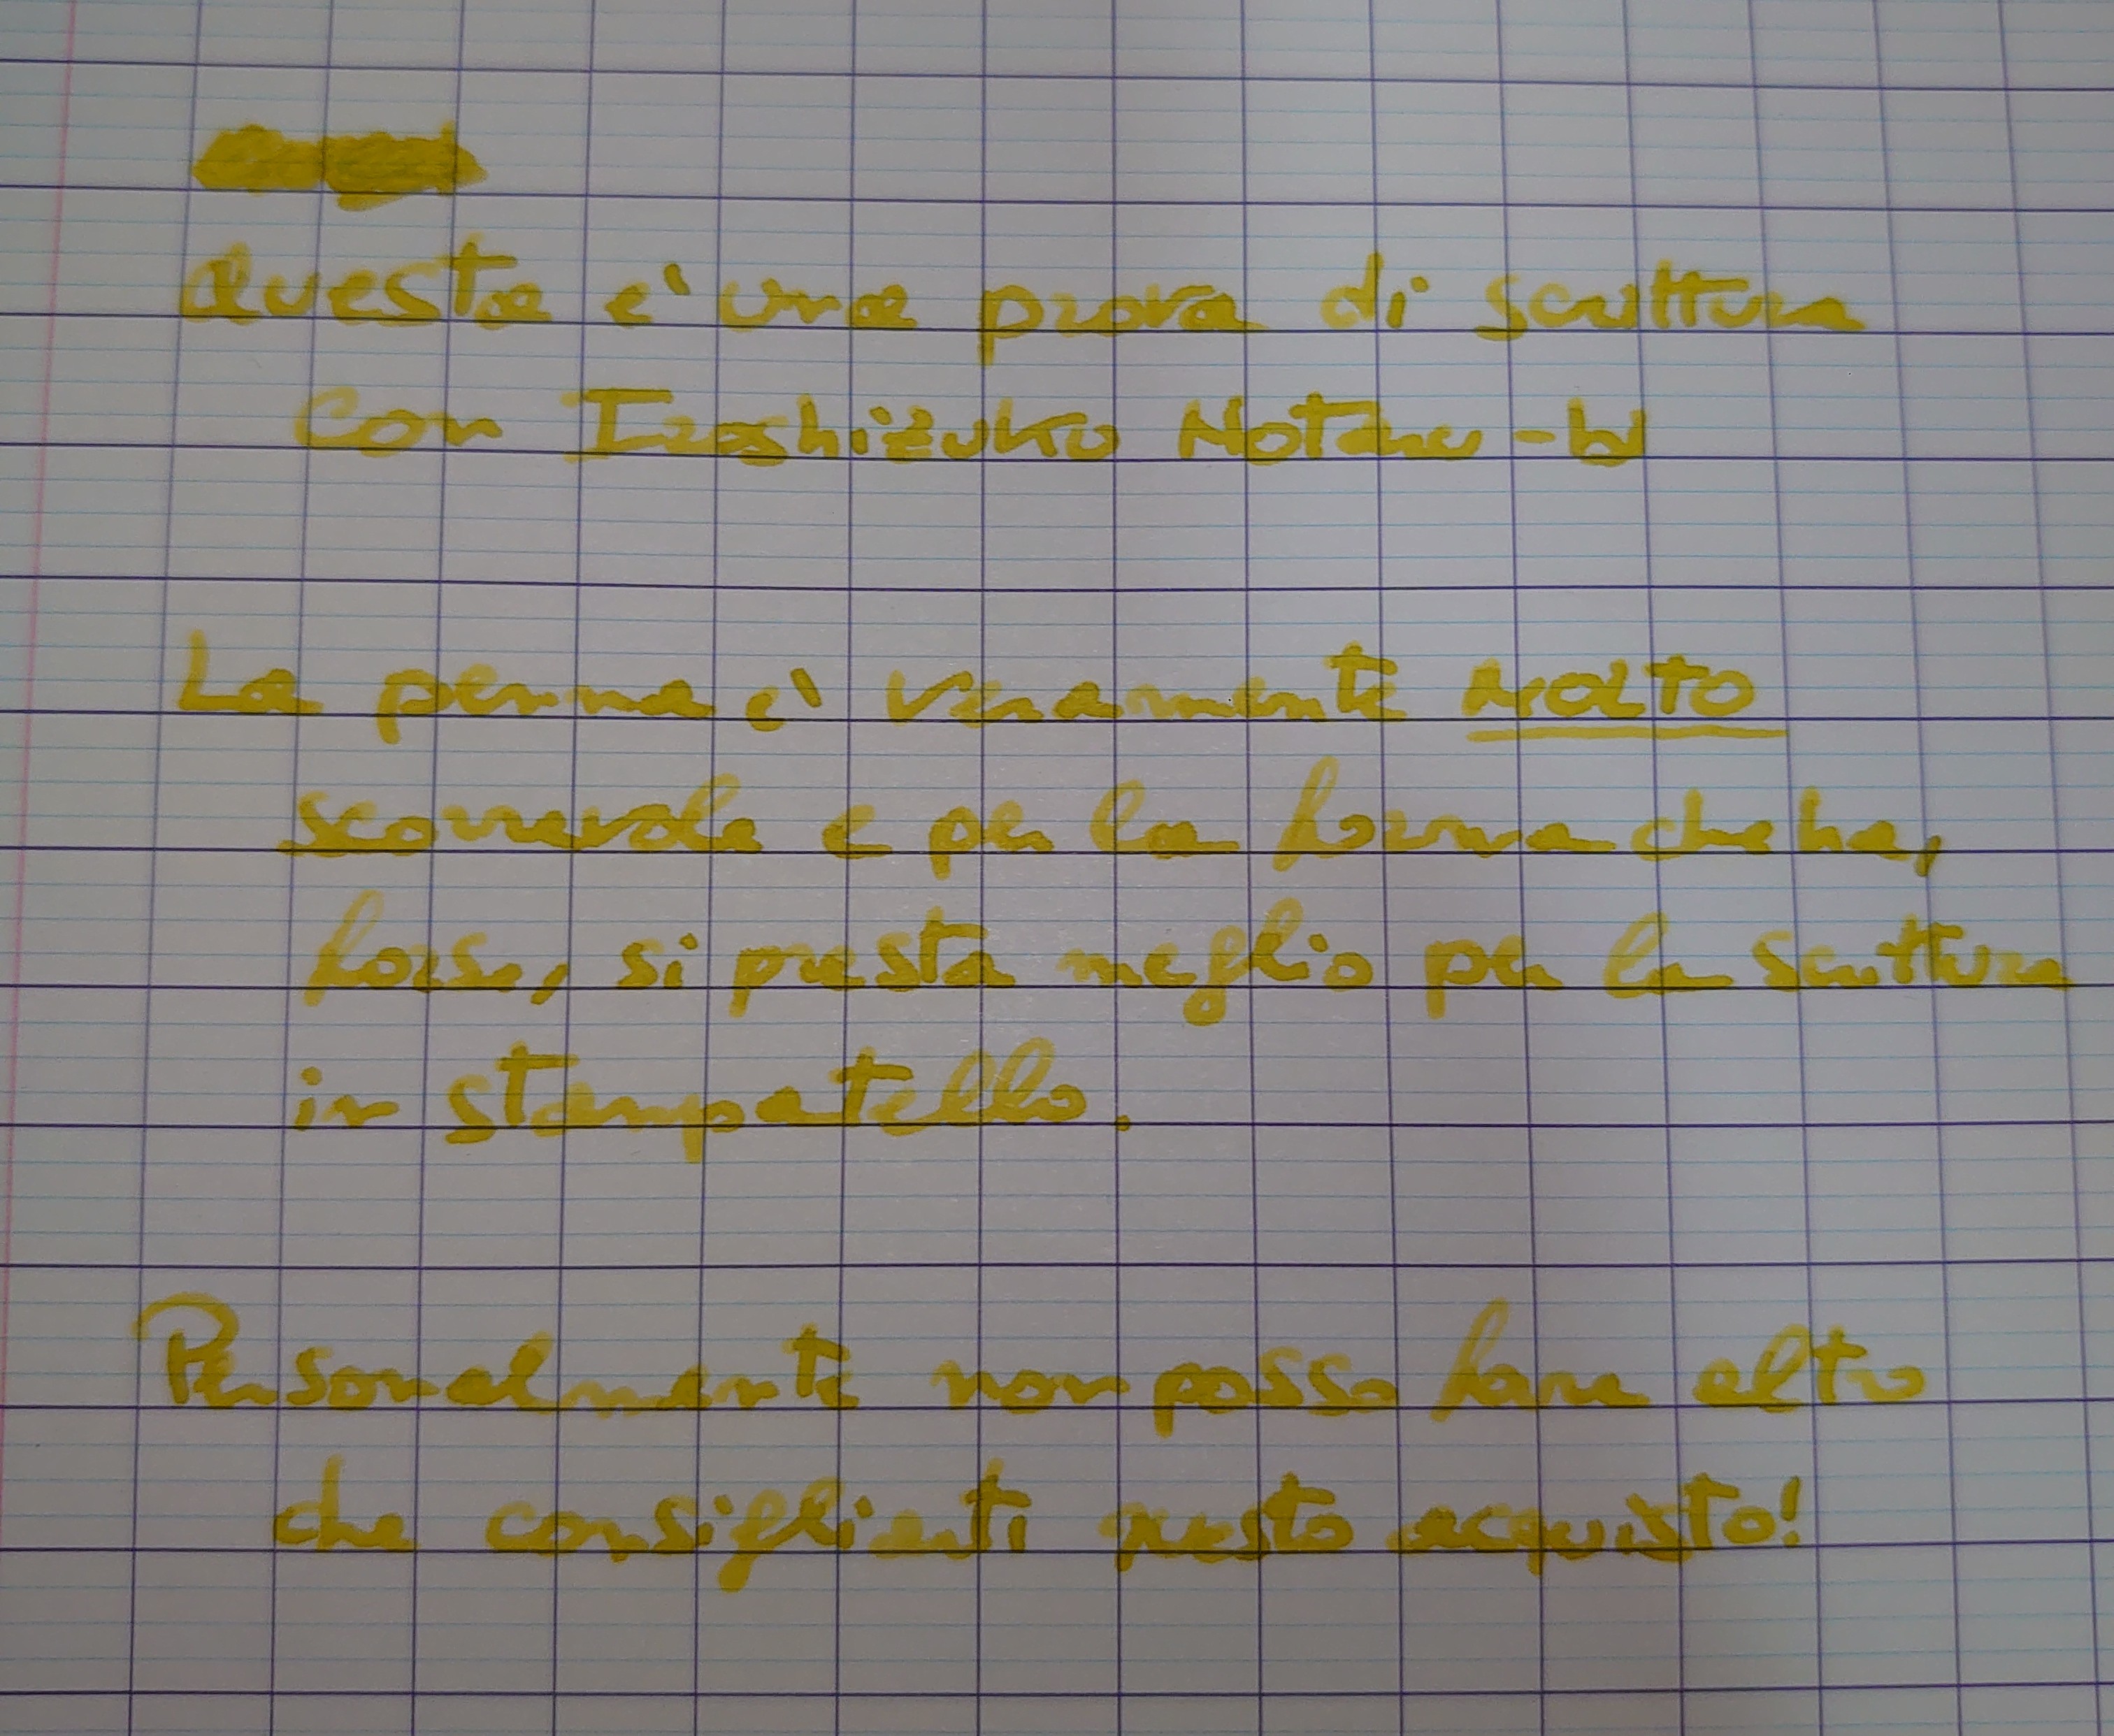 Questa e' una prova di scrittura
con Iroshizuku Hotaru-bi
La penna e' veramente MOLTO
scorrevole e per la forma che ha,
forse, si presta meglio per la scrittura
in stampatello.
Personalmente non posso fare altro
che consigliarti questo acquisto!